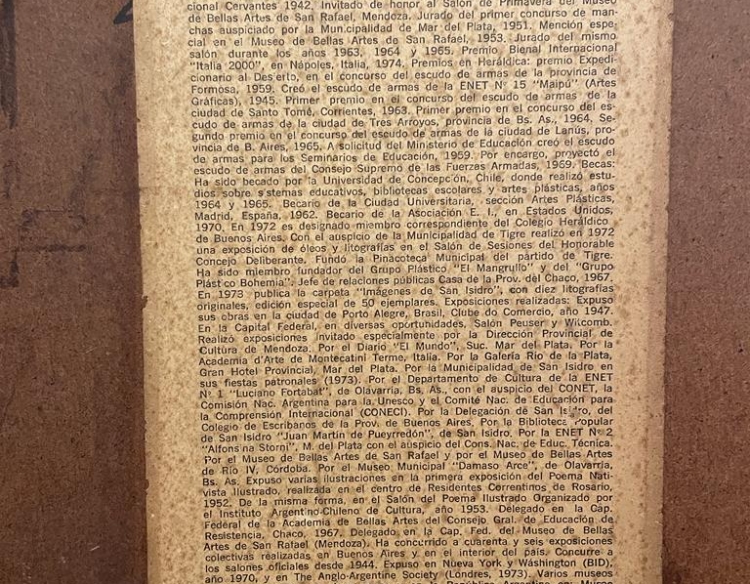 cional Cervantes 1942. Invitado de honor al Salón de Primavera del Museo
de Bellas Artes de San Rafael, Mendoza. Jurado del primer concurso de man-
chas auspiciado por la Municipalidad de Mar del Plata, 1951. Mención espe-
cial en el Museo de Bellas Artes de San Rafael, 1953. Jurado del mismo
salón durante los años 1963, 1964 y 1965. Premio Bienal Internacional
"Italia 2000", en Nápoles, Italia, 1974. Premios en Heráldica: premio Expedi-
cionario al Desierto, en el concurso del escudo de armas de la provincia de
Formosa, 1959. Creó el escudo de armas de la ENET Nº 15 "Maipú" (Artes
Gráficas), 1945. Primer premio en el concurso del escudo de armas de la
ciudad de Santo Tomé, Corrientes, 1963. Primer premio en el concurso del es-
cudo de armas de la ciudad de Tres Arroyos, provincia de Bs. As., 1964. Se-
gundo premio en el concurso del escudo de armas de la ciudad de Lanús, pro-
vincia de B. Aires, 1965. A solicitud del Ministerio de Educación creó el escudo
de armas para los Seminarios de Educación, 1959. Por encargo, proyectó el
escudo de armas del Consejo Supremo de las Fuerzas Armadas, 1969. Becas:
Ha sido becado por la Universidad de Concepción, Chile, donde realizó estu-
dios sobre sistemas educativos, bibliotecas escolares y artes plásticas, años
1964 y 1965. Becario de la Ciudad Universitaria, sección Artes Plásticas,
Madrid, España, 1962. Becario de la Asociación E. I., en Estados Unidos,
1970. En 1972 es designado miembro correspondiente del Colegio Heráldico
de Buenos Aires. Con el auspicio de la Municipalidad de Tigre realizó en 1972
una exposición de óleos y litografías en el Salón de Sesiones del Honorable
Concejo Deliberante. Fundó la Pinacoteca Municipal del partido de Tigre.
Ha sido miembro fundador del Grupo Plástico "El Mangrullo" y del "Grupo
Plástico Bohemia". Jefe de relaciones públicas Casa de la Prov. del Chaco, 1967.
En 1973 publica la carpeta "Imágenes de San Isidro", con diez litografías
originales, edición especial de 50 ejemplares. Exposiciones realizadas: Expuso
sus obras en la ciudad de Porto Alegre, Brasil, Clube do Comercio, año 1947.
En la Capital Federal, en diversas oportunidades, Salón Peuser y Witcomb.
Realizó exposiciones invitado especialmente por la Dirección Provincial de
Cultura de Mendoza. Por el Diario "El Mundo", Suc. Mar del Plata. Por la
Academia d'Arte de Montecatini Terme, Italia. Por la Galería Río de la Plata,
Gran Hotel Provincial, Mar del Plata. Por la Municipalidad de San Isidro en
sus fiestas patronales (1973). Por el Departamento de Cultura de la ENET
Nº 1 "Luciano Fortabat", de Olavarría, Bs. As., con el auspicio del CONET, la
Comisión Nac. Argentina para la Unesco y el Comité Nac. de Educación para
la Comprensión Internacional (CONECI). Por la Delegación de San Isidro, del
Colegio de Escribanos de la Prov. de Buenos Aires. Por la Biblioteca Popular
de San Isidro "Juan Martín de Pueyrredón", de San Isidro. Por la ENET Nº 2
"Alfonsina Storni", M. del Plata con el auspicio del Cons. Nac. de Educ. Técnica.
Por el Museo de Bellas Artes de San Rafael y por el Museo de Bellas Artes
de Río IV, Córdoba. Por el Museo Municipal "Damaso Arce", de Olavarría,
Bs. As. Expuso varias ilustraciones en la primera exposición del Poema Nati-
vista Ilustrado, realizada en el centro de Residentes Correntinos de Rosario,
1952. De la misma forma, en el Salón del Poema Ilustrado Organizado por
el Instituto Argentino-Chileno de Cultura, año 1953. Delegado en la Cap.
Federal de la Academia de Bellas Artes del Consejo Gral. de Educación de
Resistencia, Chaco, 1967. Delegado en la Cap. Fed. del Museo de Bellas
Artes de San Rafael (Mendoza). Ha concurrido a cuarenta y seis exposiciones
colectivas realizadas en Buenos Aires y en el interior del país. Concurre a
los salones oficiales desde 1944. Expuso en Nueva York y Washington (BID),
año 1970, y en The Anglo-Argentine Society (Londres, 1973). Varios museos